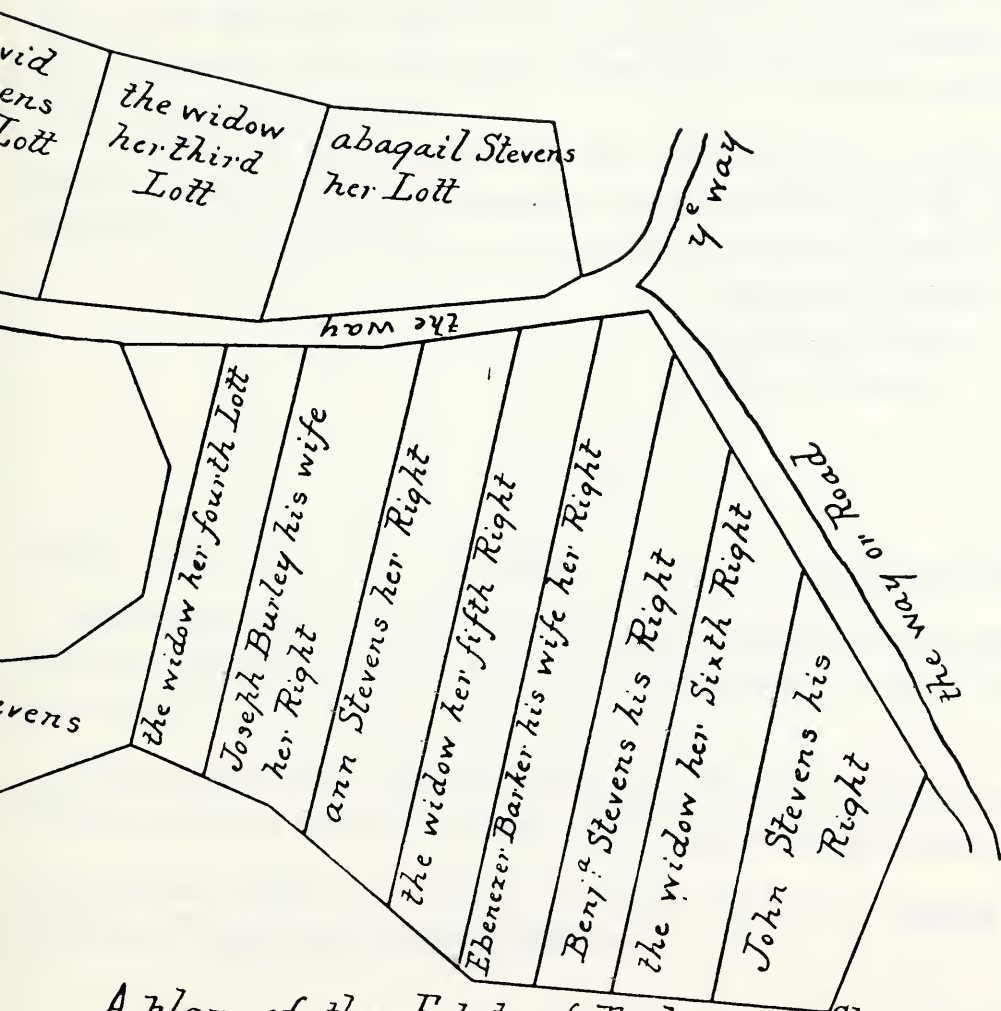 vid
ens
Lott
the widow
her third
Lott
abagail Stevens
her Lott
yᵉ way
the way
the way or Road
the widow her fourth Lott
Joseph Burley his wife
her Right
ann Stevens her Right
the widow her fifth Right
Ebenezer Barker his wife her Right
Benjᵃ Stevens his Right
the widow her Sixth Right
John Stevens his
Right
evens
A plan of the